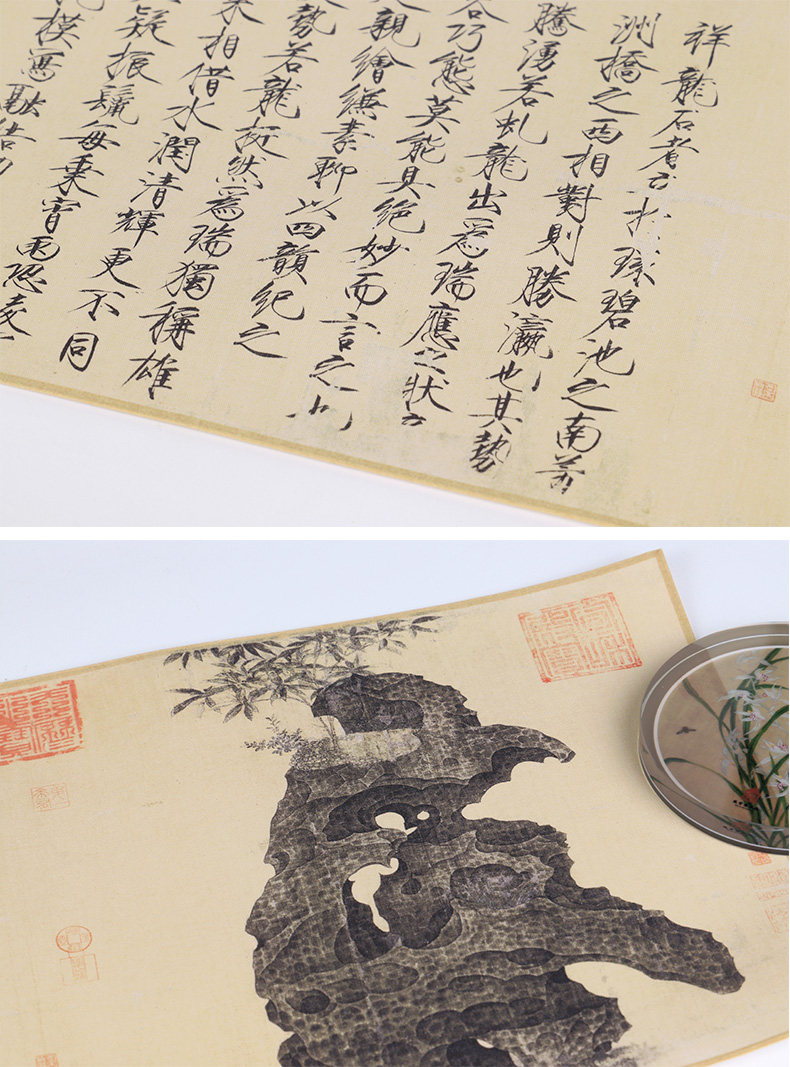 祥龍石者立於環碧池之南芳
洲橋之西相對則勝瀛也其勢
騰湧若虬龍出爲瑞應之狀奇
容巧態莫能具絕妙而言之也
親繪縑素聊以四韻紀之
勢若龍挺然爲瑞獨稱雄
來相借水潤清輝更不同
疑振鬣每乘宵雨恐凌
模寫融結